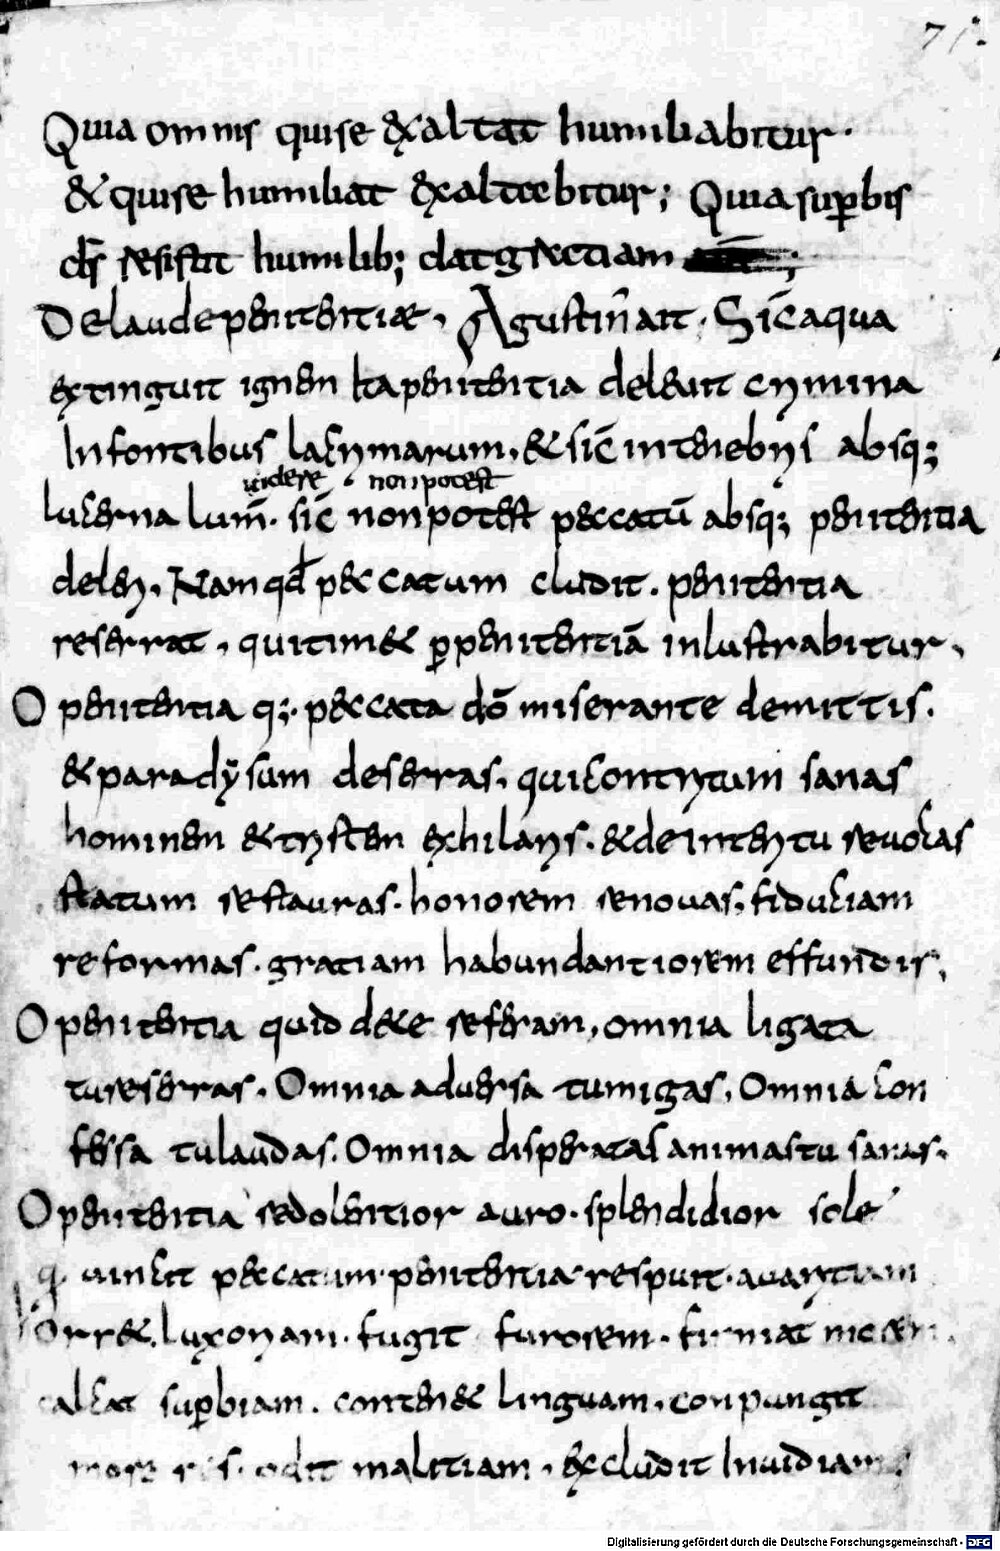 71.
Quia omnis quise exaltat humiliabitur.
& quise humiliat exaltabitur; Quia sup̄bis
d̄s resistit humilib; dat gratiam
De laude penitentiae, Agustin̄ ait. Sic̄ aqua
extinguit ignen Ita penitentia deleuit crimina
In fontibus lacrimarum, & sic̄ in tenebris absq;
uidere non potest
lucerna lum̄. sic̄ non potest peccatū absq; penitentia
deleri, Nam qd̄ peccatum cludit. penitentia
reserrat, qui tim& p̄ penitentiā inlustrabitur,
O penitentia q;. peccata dō miserante demittis.
& paradẏsum deserras, qui contritum sanas
hominen & tristen exhilaris. & de interitu reuocas
statum restauras. honorem renouas, fiduciam
reformas. gratiam habundantiorem effundis,
O penitentia quid de te referam, omnia ligata
tu reserras. Omnia aduersa tu migas, Omnia con
fessa tu laudas. Omnia disperatas animas tu sanas.
O penitentia redolentior auro. splendidior sole
q. uincit peccatum. penitentia respuit. auaritiam
orr&. luxoriam. fugit furorem. firmat
calcat sup̄biam. conten& linguam, conpungit
mores. odit malitiam, excludit Inuidiam
Digitalisierung gefördert durch die Deutsche Forschungsgemeinschaft - DFG